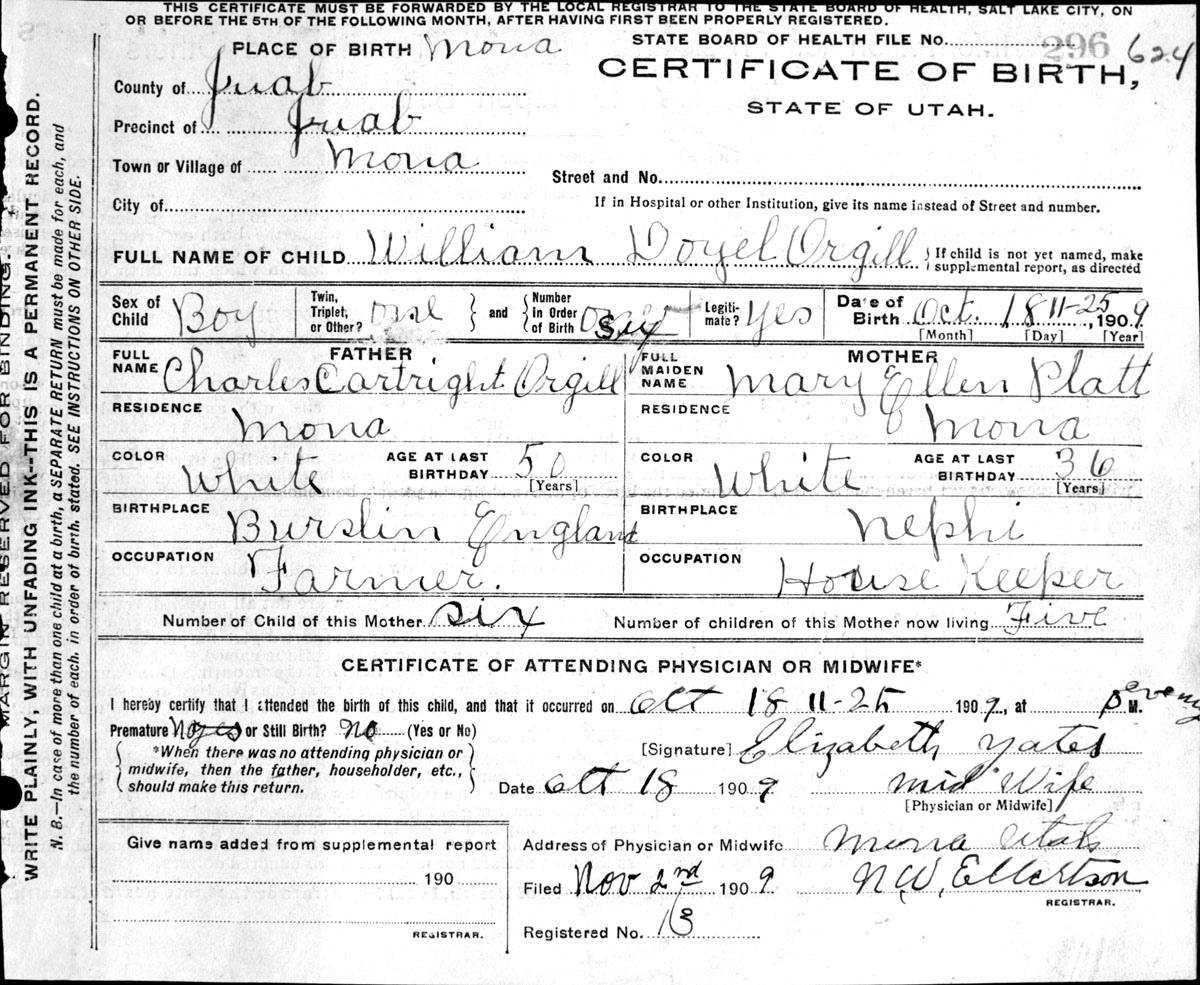 THIS CERTIFICATE MUST BE FORWARDED BY THE LOCAL REGISTRAR TO THE STATE BOARD OF HEALTH, SALT LAKE CITY, ON
OR BEFORE THE 5TH OF THE FOLLOWING MONTH, AFTER HAVING FIRST BEEN PROPERLY REGISTERED.
PLACE OF BIRTH Mona
STATE BOARD OF HEALTH FILE No. 296 624
CERTIFICATE OF BIRTH,
STATE OF UTAH.
County of Juab
Precinct of Juab
Town or Village of Mona
Street and No.
City of
If in Hospital or other Institution, give its name instead of Street and number.
FULL NAME OF CHILD William Doyel Orgill { If child is not yet named, make
supplemental report, as directed
Sex of Child Boy
Twin, Triplet, or Other? one } and { Number in Order of Birth Six
Legitimate? Yes
Date of Birth Oct. 18 11-25, 1909
[Month] [Day] [Year]
FATHER
FULL NAME Charles Cartright Orgill
RESIDENCE Mona
COLOR White AGE AT LAST BIRTHDAY 50 [Years]
BIRTHPLACE Burslin England
OCCUPATION Farmer.
MOTHER
FULL MAIDEN NAME Mary Ellen Platt
RESIDENCE Mona
COLOR White AGE AT LAST BIRTHDAY 36 [Years]
BIRTHPLACE Nephi
OCCUPATION House Keeper
Number of Child of this Mother six Number of children of this Mother now living Five
CERTIFICATE OF ATTENDING PHYSICIAN OR MIDWIFE*
I hereby certify that I attended the birth of this child, and that it occurred on Oct 18 11-25 1909, at P M.
Premature No yes or Still Birth? No (Yes or No)
{ *When there was no attending physician or
midwife, then the father, householder, etc.,
should make this return. }
[Signature] Elizabeth Yates
Date Oct 18 1909 Mid Wife
[Physician or Midwife]
Give name added from supplemental report
190
REGISTRAR.
Address of Physician or Midwife Mona Utah
Filed Nov 2nd 1909 N.W. Ellertson
REGISTRAR.
Registered No. 13
MARGIN RESERVED FOR BINDING.
WRITE PLAINLY, WITH UNFADING INK--THIS IS A PERMANENT RECORD.
N. B.—In case of more than one child at a birth, a SEPARATE RETURN must be made for each, and
the number of each. in order of birth. stated. SEE INSTRUCTIONS ON OTHER SIDE.